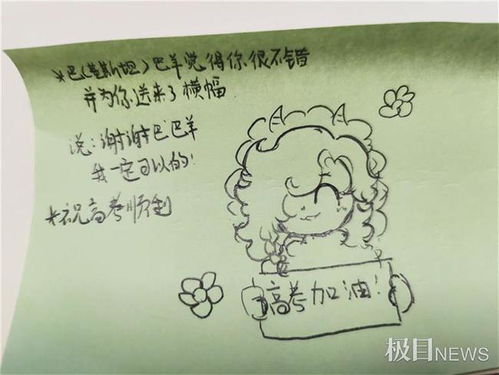 *巴(基斯坦)巴羊觉得你很不错
并为你送来了横幅
说:谢谢巴巴羊
我一定可以的!
*祝高考顺利
高考加油!
极目NEWS